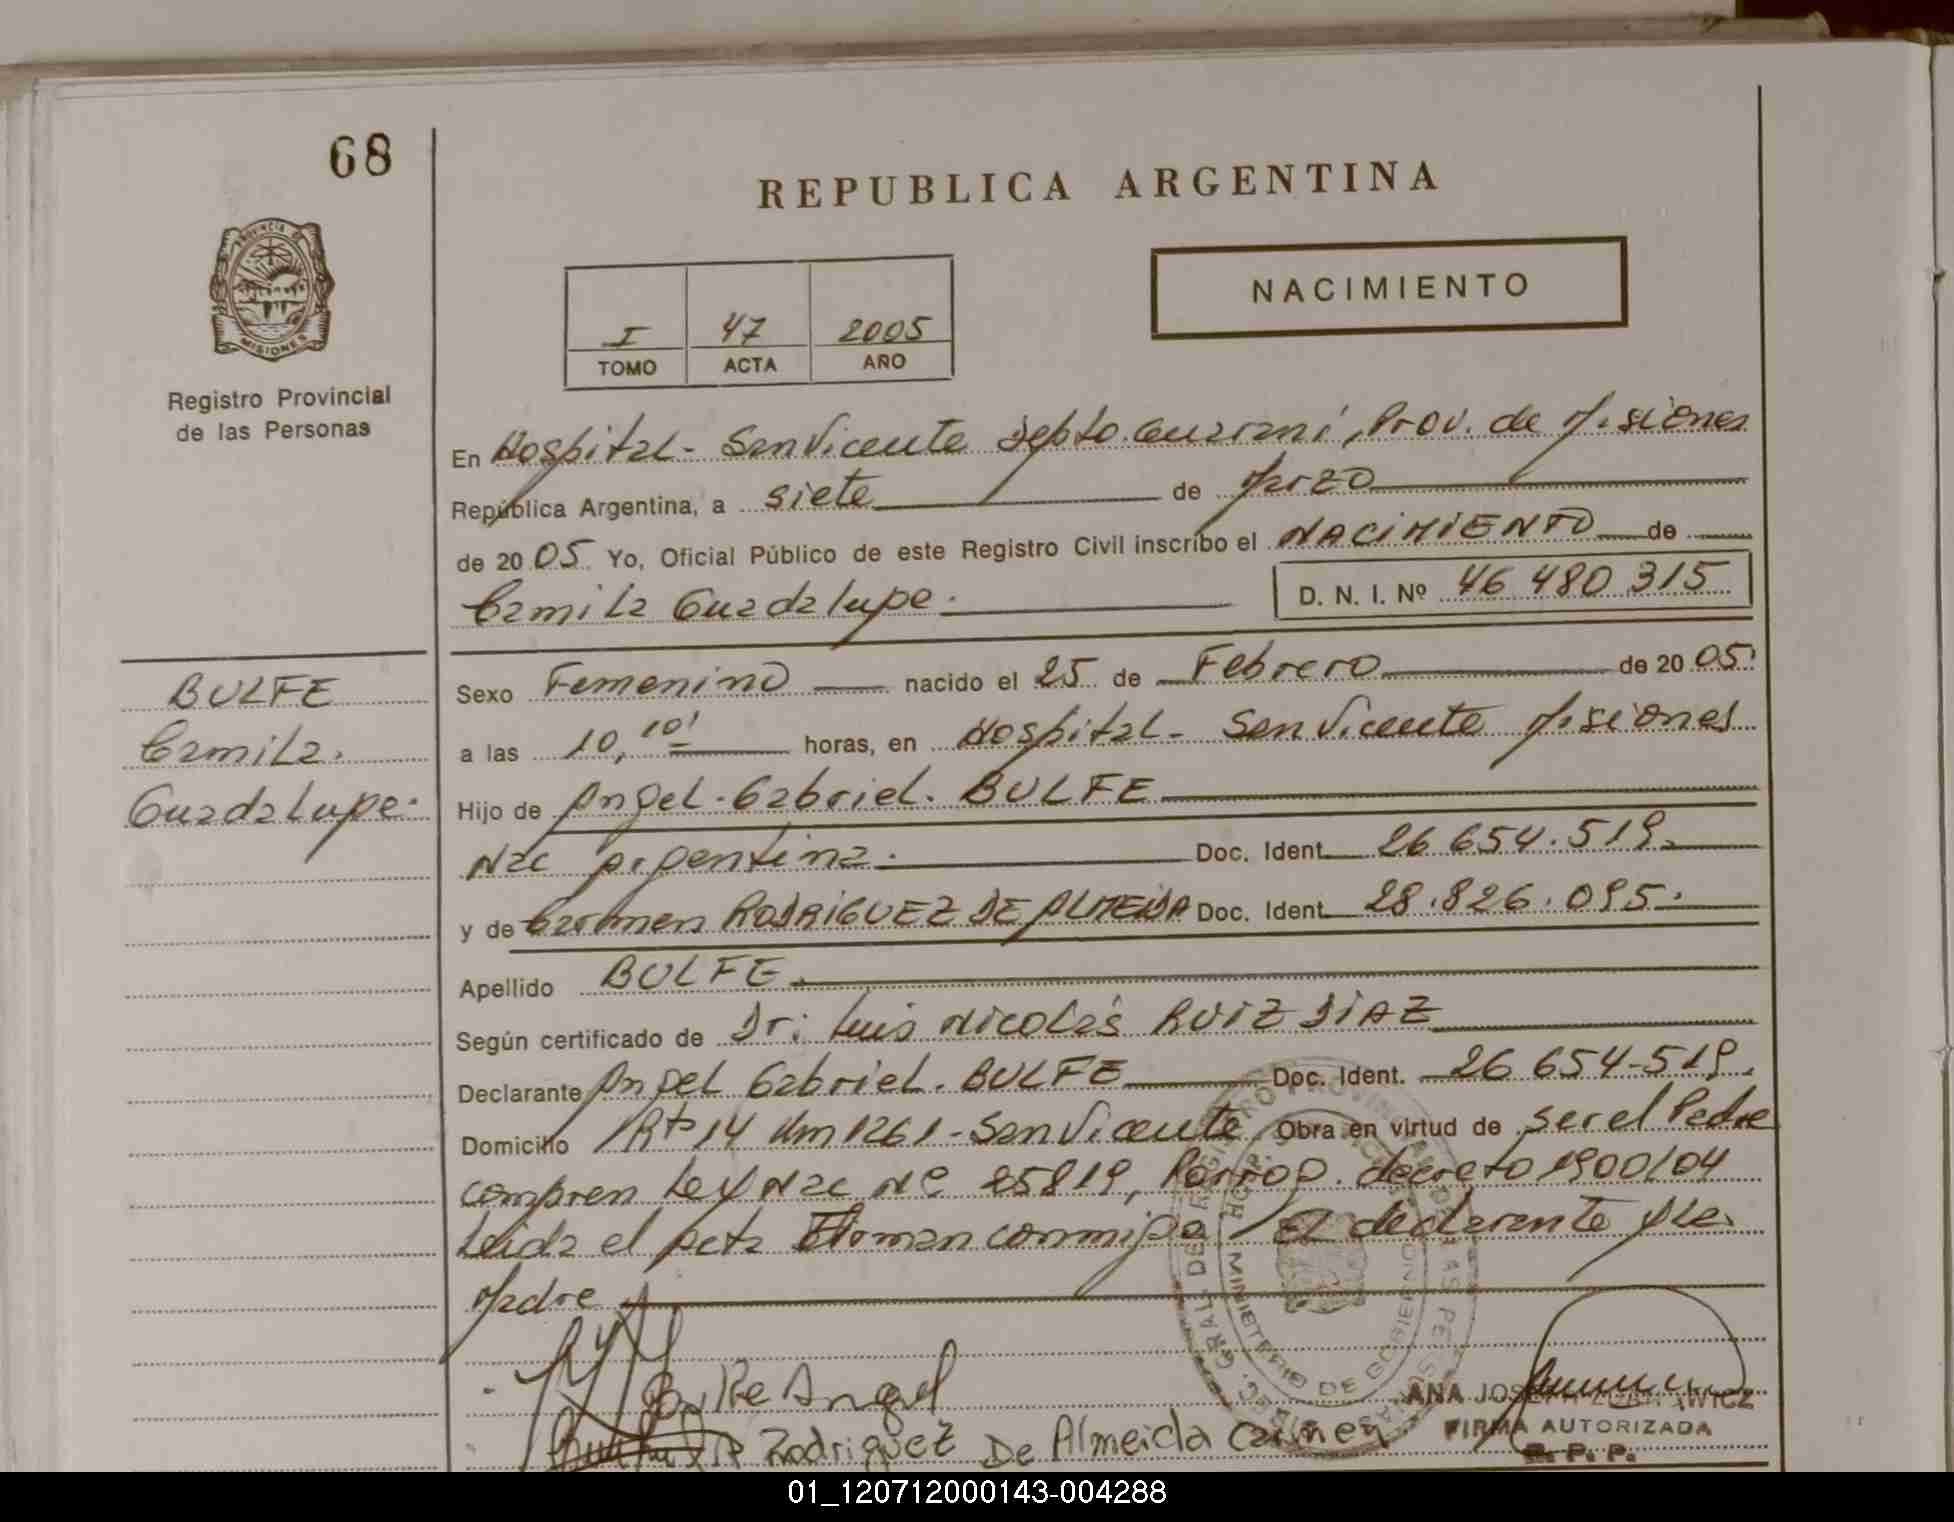 68
REPUBLICA ARGENTINA
PROVINCIA DE
MISIONES
NACIMIENTO
I 47 2005
TOMO ACTA AÑO
Registro Provincial
de las Personas
En Hospital - San Vicente Depto. Guaraní, Prov. de Misiones
República Argentina, a siete de Marzo
de 2005 Yo, Oficial Público de este Registro Civil inscribo el NACIMIENTO de
Camila Guadalupe. D. N. I. Nº 46 480 315
BULFE
Camila.
Guadalupe.
Sexo Femenino nacido el 25 de Febrero de 2005.
a las 10,10' horas, en Hospital - San Vicente Misiones
Hijo de Angel. Gabriel. BULFE
Nac Argentina. Doc. Ident. 26 654.519.
y de Carmen RODRIGUEZ DE ALMEIDA Doc. Ident. 28.826.095.
Apellido BULFE
Según certificado de Dr: Luis Nicolás RUIZ DIAZ
Declarante Angel Gabriel. BULFE Doc. Ident. 26 654-519.
Domicilio Rta 14 Km 1261 - San Vicente Obra en virtud de ser el Padre
compren Ley Nac Nº 25819, Porrog. decreto 1900/04
Leida el Acta Firman conmigo El declarante y La
Madre
Bulfe Angel
Rodriguez De Almeida Carmen
ANA JOS
FIRMA AUTORIZADA
R. P. P.
MINISTERIO DE GOBIERNO
01_120712000143-004288